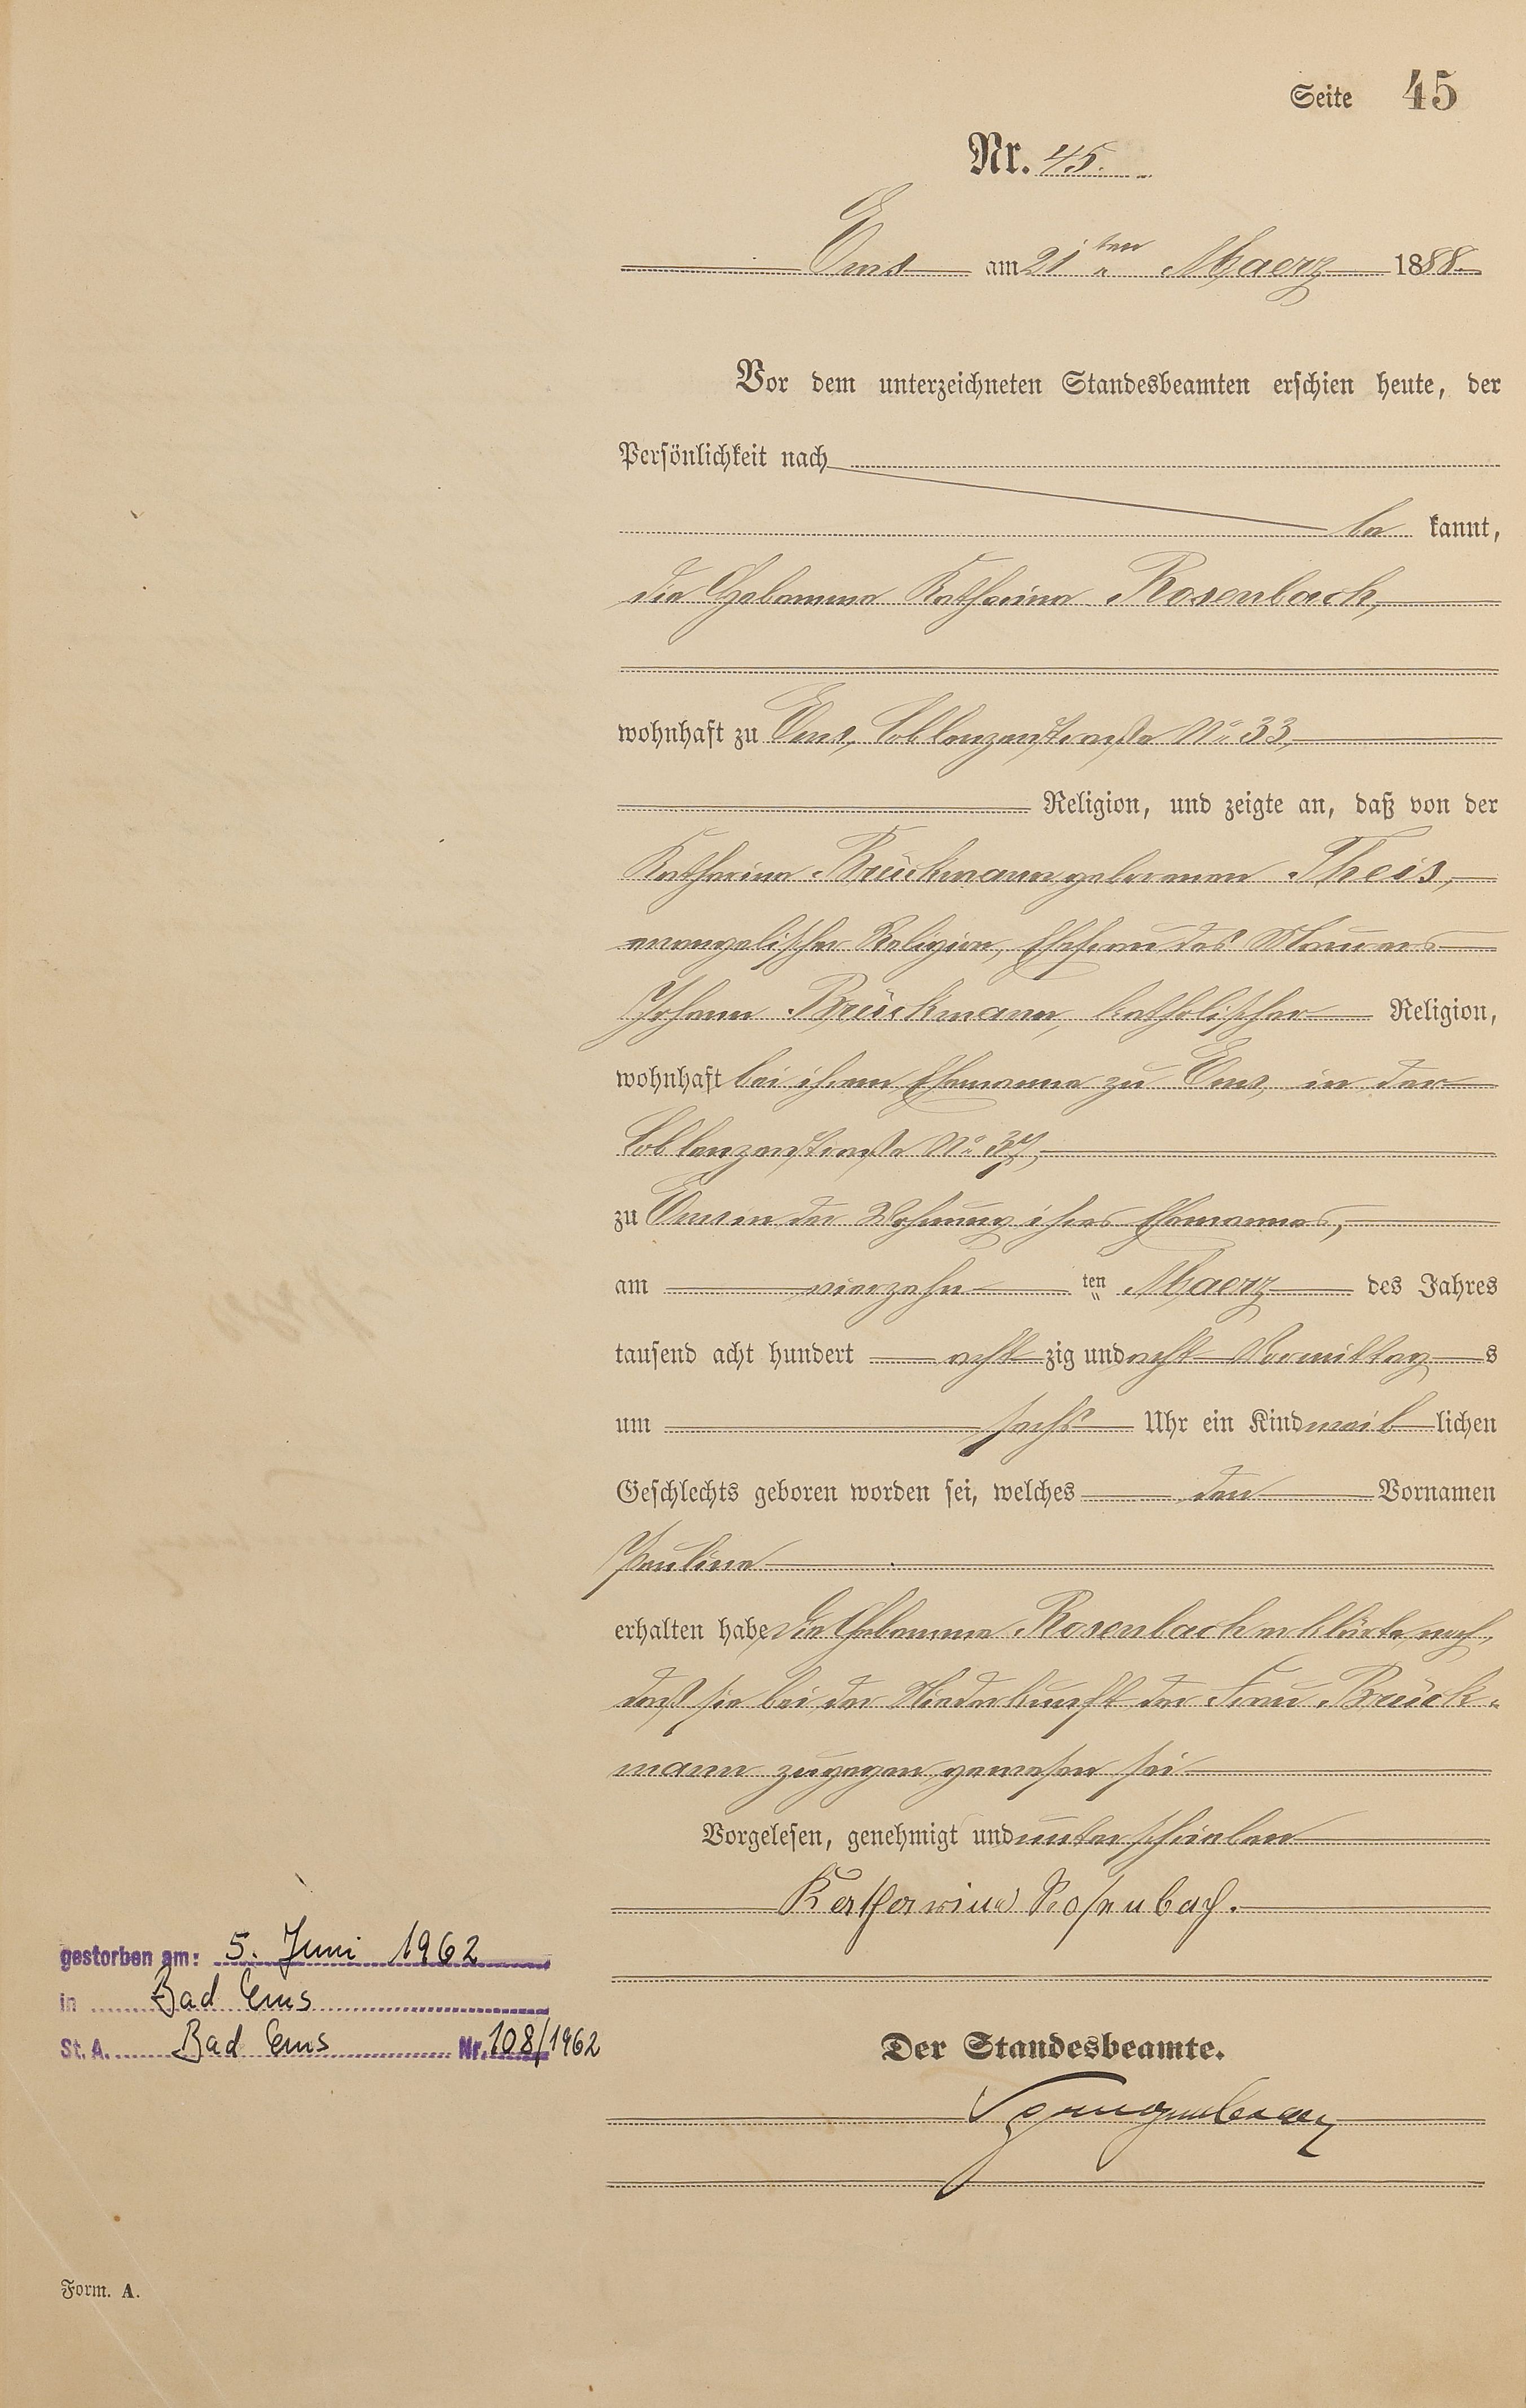 Seite 45
Nr. 45.
Ems am 21ten Maerz 1888.
Vor dem unterzeichneten Standesbeamten erschien heute, der
Persönlichkeit nach
be kannt,
die Hebamme Katharina Rosenbach,
wohnhaft zu Ems, Coblenzerstraße No 33,
Religion, und zeigte an, daß von der
Katharina Brückmann geborenen Theis,
evangelischer Religion, Ehefrau des Maurers
Johann Brückmann, katholischer Religion,
wohnhaft bei ihrem Ehemanne zu Ems, in der
Coblenzerstraße No 37,
zu Ems in der Wohnung ihres Ehemannes,
am vierzehn ten Maerz des Jahres
tausend acht hundert acht zig und acht Vormittag s
um sechs Uhr ein Kind weib lichen
Geschlechts geboren worden sei, welches den Vornamen
Pauline
erhalten habe. Die Hebamme Rosenbach erklärte noch,
daß sie bei der Niederkunft der Frau Brück-
mann zugegen gewesen sei
Vorgelesen, genehmigt und unterschrieben
Katharina Rosenbach.
Der Standesbeamte.
gestorben am: 5. Juni 1962
in Bad Ems
St. A. Bad Ems Nr. 108/1962
Form. A.